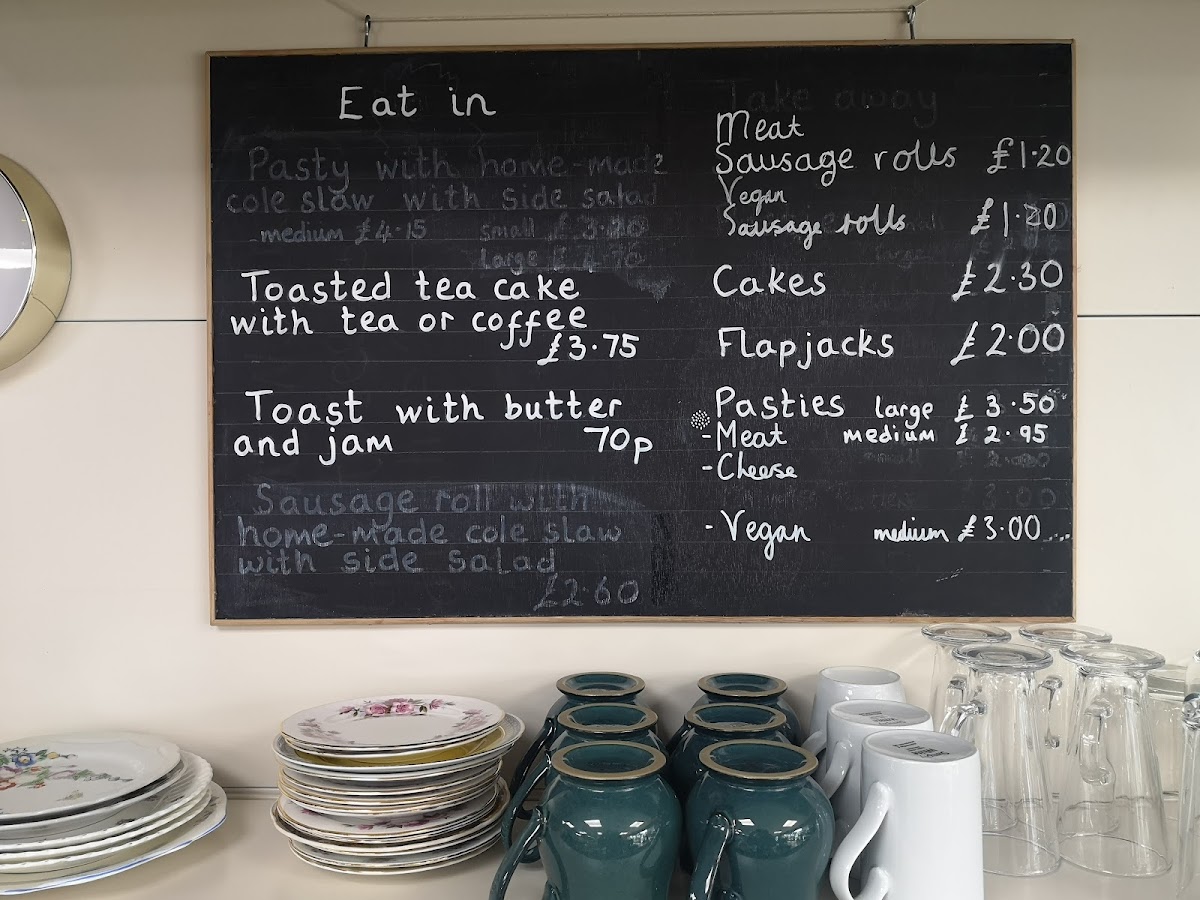 Eat in
Pasty with home-made
cole slaw with side salad
medium £4.15 small £3.20
large £4.70
Toasted tea cake
with tea or coffee
£3.75
Toast with butter
and jam 70p
Sausage roll with
home-made cole slaw
with side salad
£2.60
Take away
Meat
Sausage rolls £1.20
Vegan
Sausage rolls £1.20
Cakes £2.30
Flapjacks £2.00
Pasties large £3.50
-Meat medium £2.95
-Cheese small
3.00
-Vegan medium £3.00